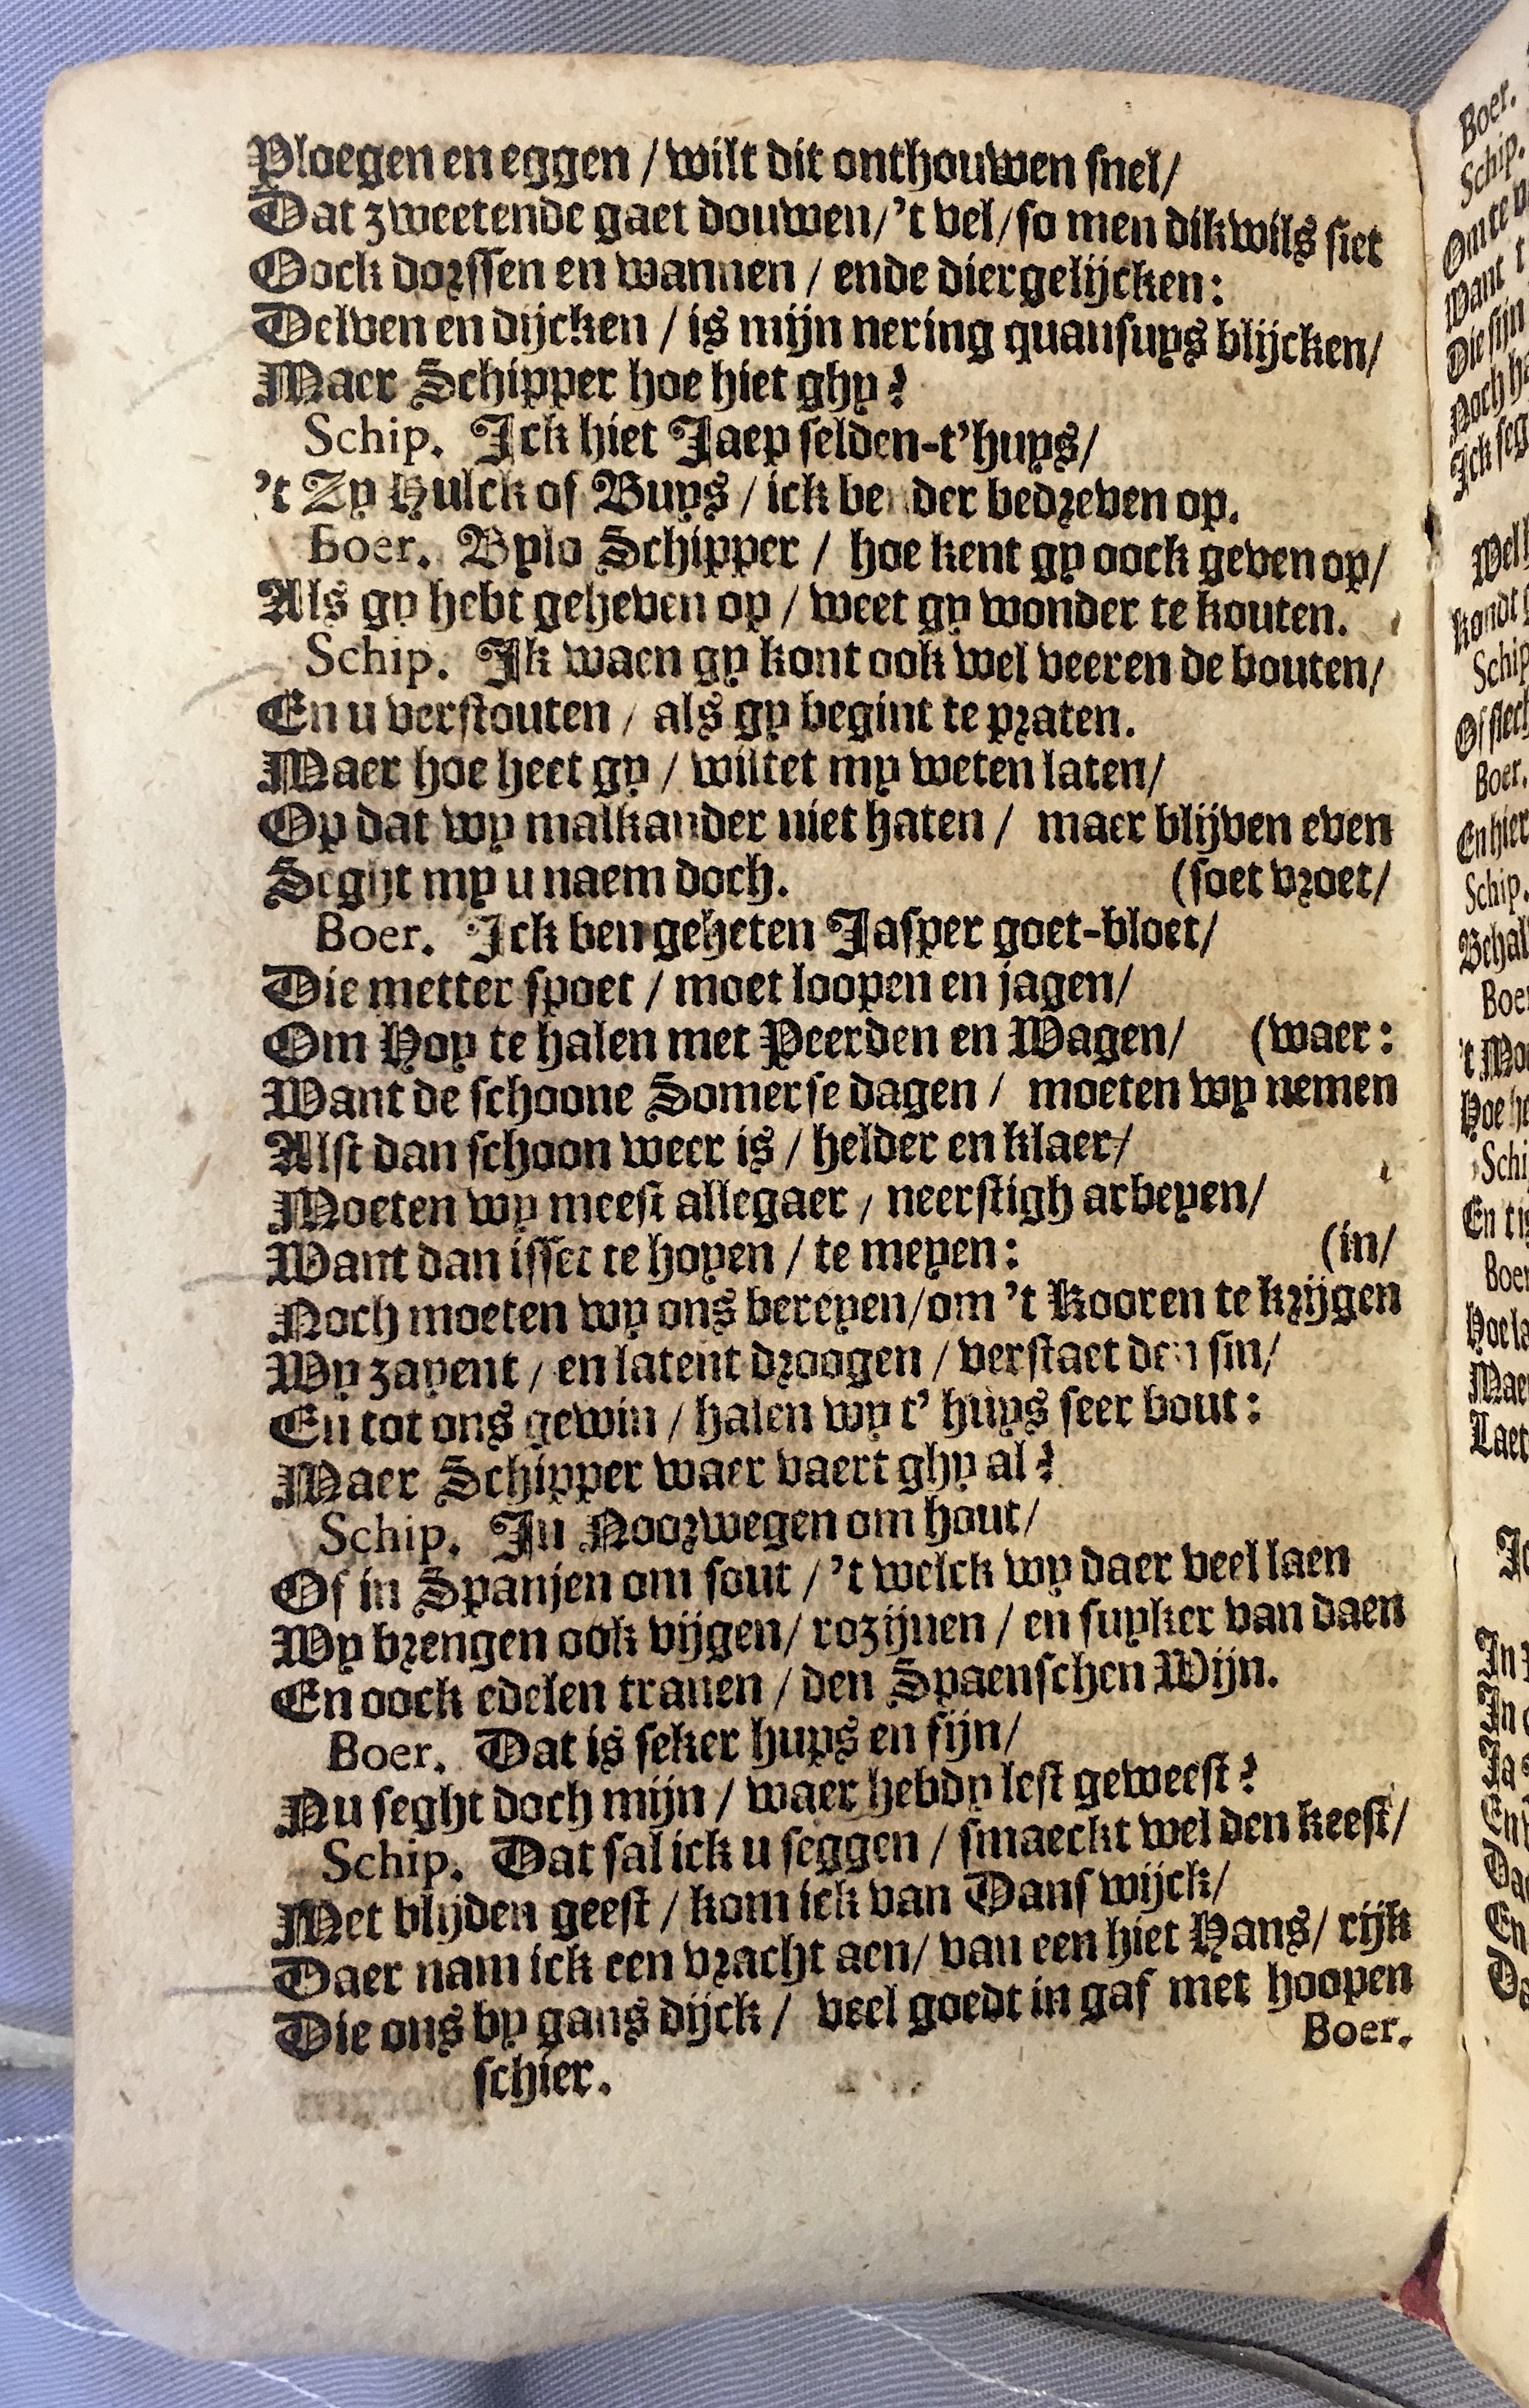 Ploegen en eggen / wilt dit onthouwen snel/
Dat zweetende gaet douwen/'t vel/so men dikwils siet
Oock dorssen en wannen / ende diergelijcken:
Delven en dijcken / is mijn nering quansuys blijcken/
Maer Schipper hoe hiet ghy?
Schip. Ick hiet Jaep selden-t'huys/
't Zy Hulck of Buys / ick ben der bedreven op.
Boer. Bylo Schipper / hoe kent gy oock geven op/
Als gy hebt geheven op / weet gy wonder te kouten.
Schip. Ik waen gy kont ook wel veeren de bouten/
En u verstouten / als gy begint te praten.
Maer hoe heet gy / wiltet my weten laten/
Op dat wy malkander niet haten / maer blijven even
Seght my u naem doch. (soet vroet/
Boer. Ick ben geheten Jasper goet-bloet/
Die metter spoet / moet loopen en jagen/
Om Hoy te halen met Peerden en Wagen/ (waer:
Want de schoone Somerse dagen / moeten wy nemen
Alst dan schoon weer is / helder en klaer/
Moeten wy meest allegaer / neerstigh arbeyen/
Want dan isset te hoyen / te meyen: (in/
Noch moeten wy ons bereyen/om 't Kooren te krijgen
Wy zayent / en latent droogen / verstaet den sin/
En tot ons gewin / halen wy t' huys seer bout:
Maer Schipper waer vaert ghy al?
Schip. In Noorwegen om hout/
Of in Spanjen om sout / 't welck wy daer veel laen
Wy brengen ook vijgen/ rozijnen / en suyker van daen
En oock edelen tranen / den Spaenschen Wijn.
Boer. Dat is seker hups en fijn/
Nu seght doch mijn / waer hebdy lest geweest?
Schip. Dat sal ick u seggen / smaeckt wel den keest/
Met blijden geest / kom ick van Dans wijck/
Daer nam ick een vracht aen/ van een hiet Hans/ rijk
Die ons by gans dijck / veel goedt in gaf met hoopen
schier. Boer.
Boer.
Schip.
Om te
Want
Die sijn
Noch
Ick
Wel
kondt
Schip
Of
Boer.
En hier
Schip.
Boer
't
Hoe
Schi
En
Boer
Hoe
Maer
Laet
In
In
Ja
En
En